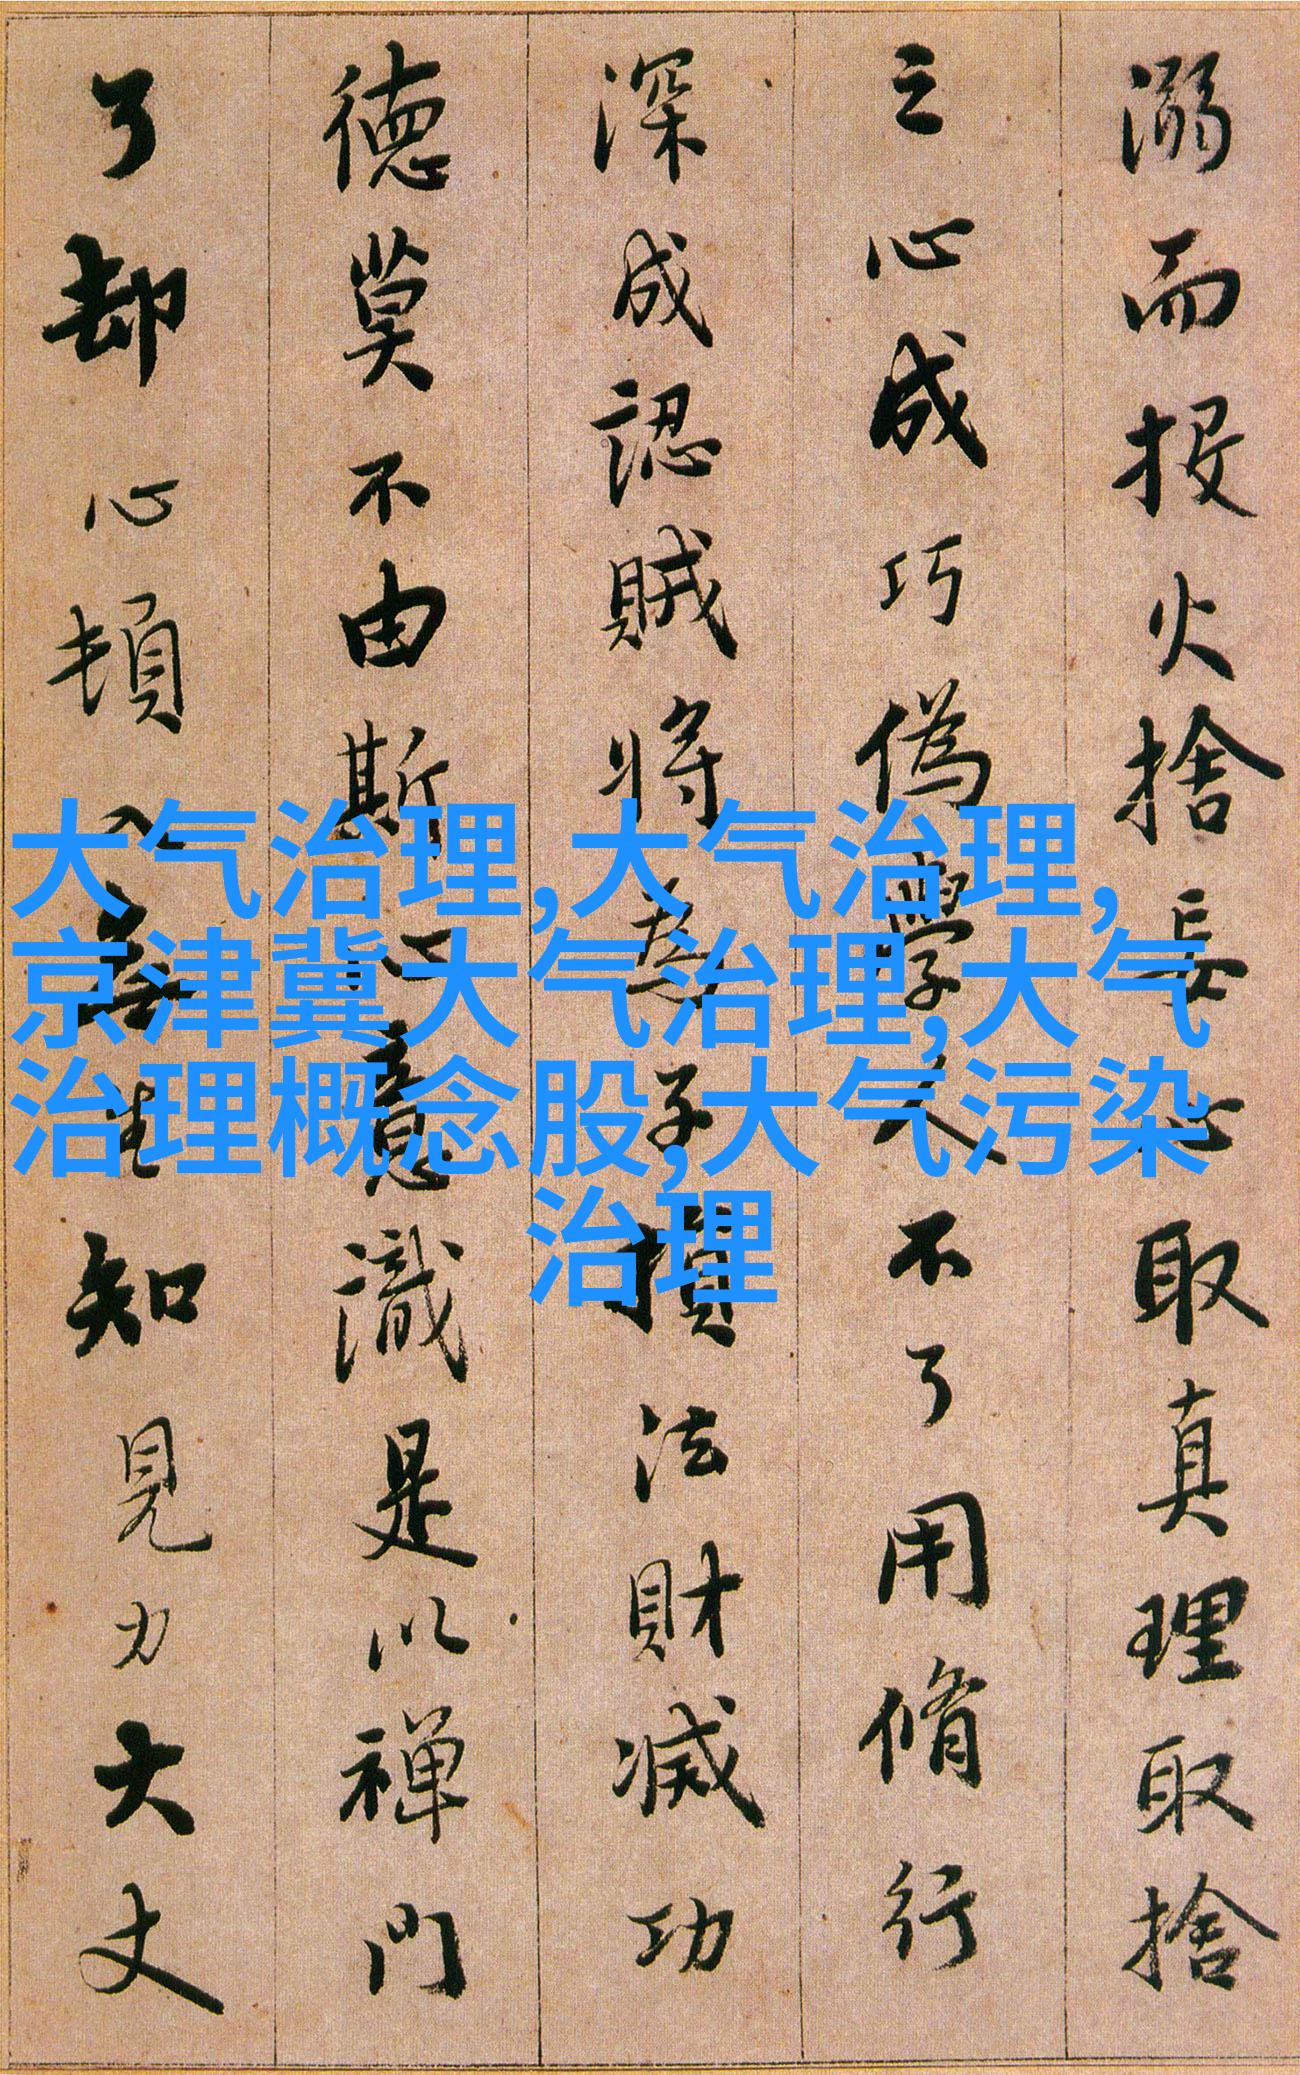 溺而投火捨妄心取真理取捨
之心成巧偽學人不了用脩行
深成認賊將為子損法財滅功
德莫不由斯心意識是以禪門
了却心頓入無生知見力大丈
大气治理,大气治理,
京津冀大气治理,大气
治理概念股,大气污染
治理